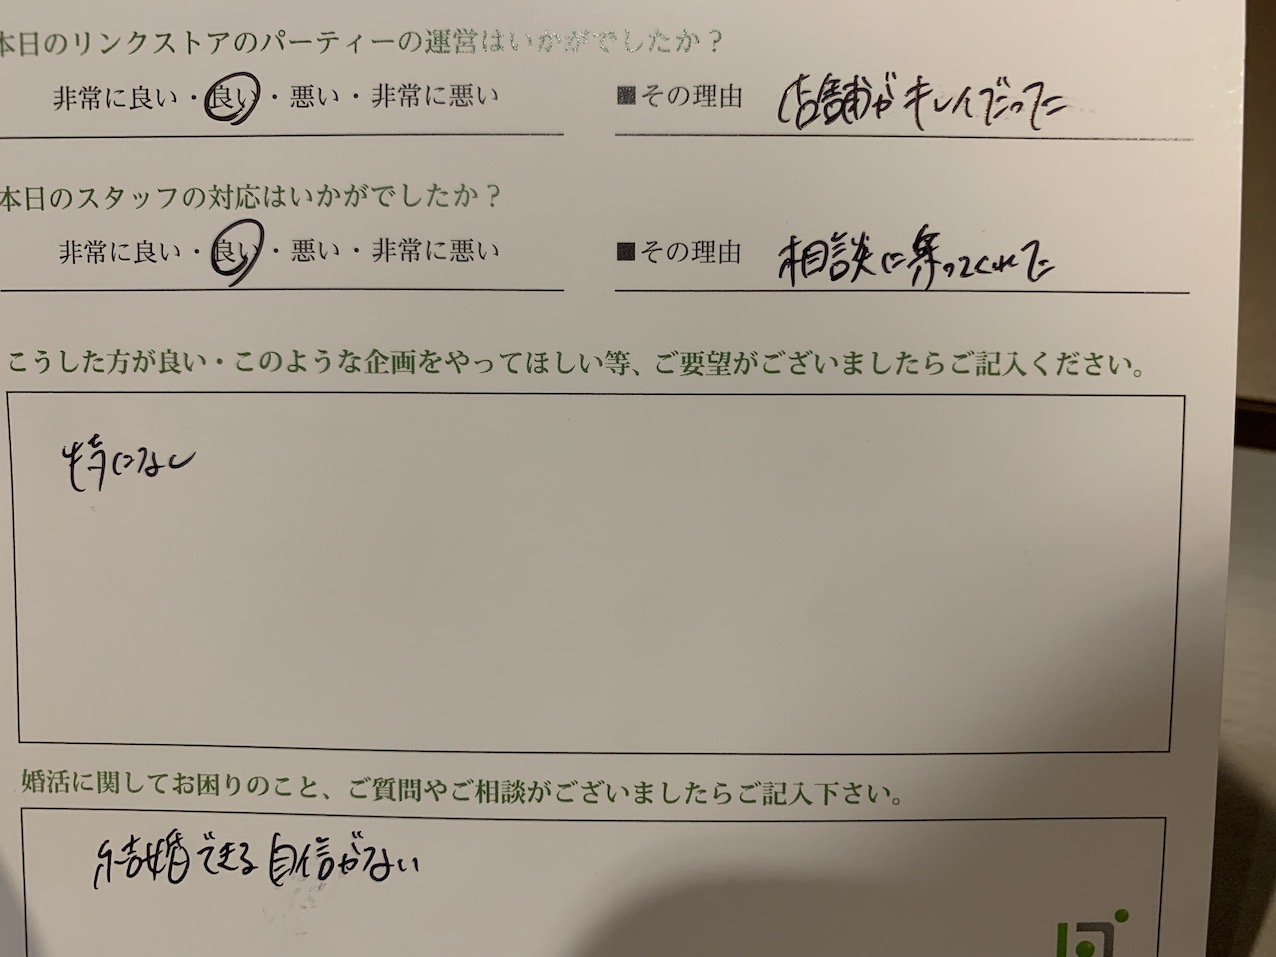 本日のリンクストアのパーティーの運営はいかがでしたか？
非常に良い・良い・悪い・非常に悪い ■その理由 店舗がキレイだった
本日のスタッフの対応はいかがでしたか？
非常に良い・良い・悪い・非常に悪い ■その理由 相談に乗ってくれた
こうした方が良い・このような企画をやってほしい等、ご要望がございましたらご記入ください。
特になし
婚活に関してお困りのこと、ご質問やご相談がございましたらご記入下さい。
結婚できる自信がない